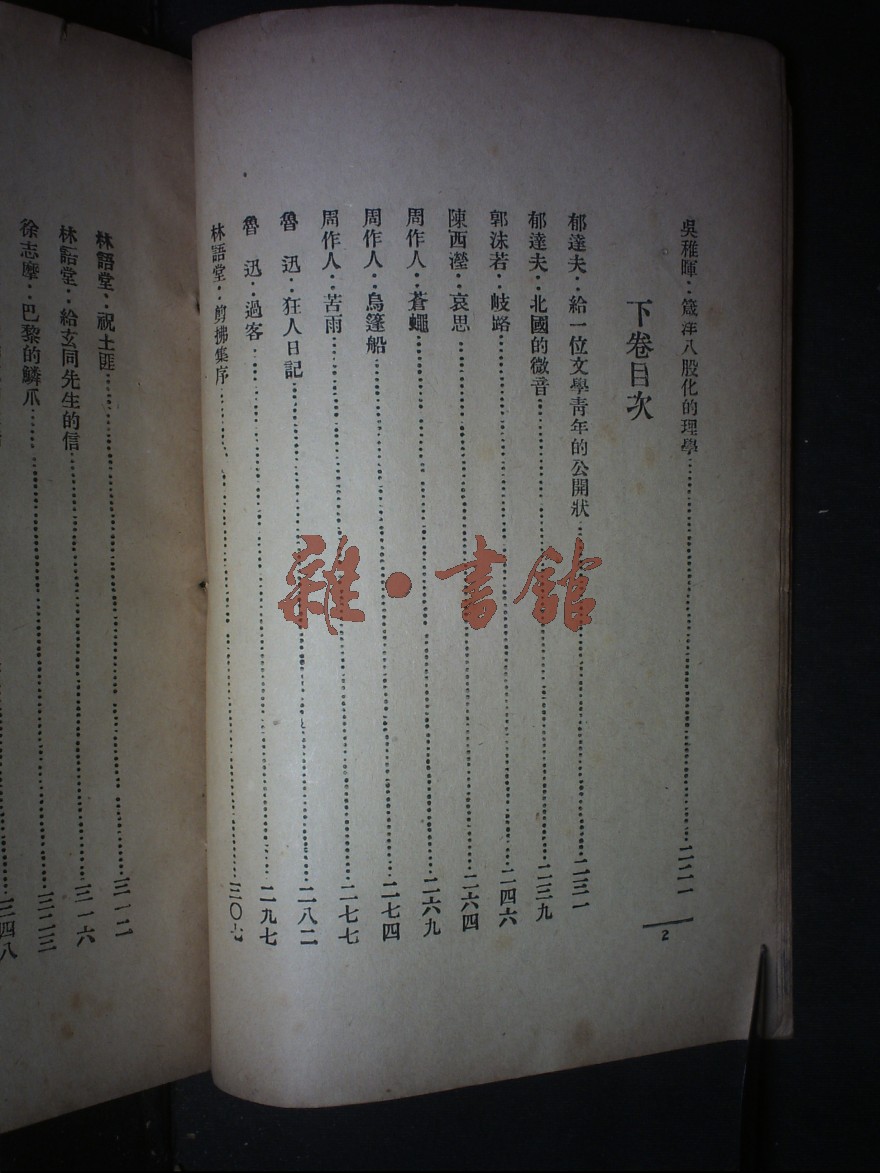 吳稚暉：箴洋八股化的理學……二二一
下卷目次
郁達夫：給一位文學青年的公開狀……二三一
郁達夫：北國的微音……二三九
郭沫若：岐路……二四六
陳西瀅：哀思……二六四
周作人：蒼蠅……二六九
周作人：烏篷船……二七四
周作人：苦雨……二七七
魯迅：狂人日記……二八二
魯迅：過客……二九七
林語堂：剪拂集序……三〇七
2
林語堂：祝土匪……三一二
林語堂：給玄同先生的信……三一六
徐志摩：巴黎的鱗爪……三二三
三四八
雜·書館